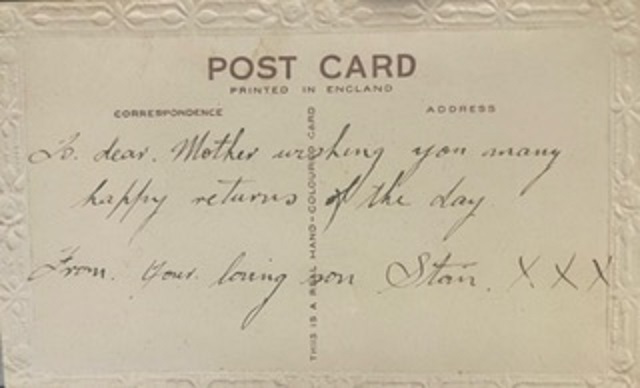 POST CARD
PRINTED IN ENGLAND
CORRESPONDENCE
ADDRESS
THIS IS A REAL HAND-COLOURED CARD
To. dear. Mother wishing you many
happy returns of the day
From. Your. loving son Stan. X X X